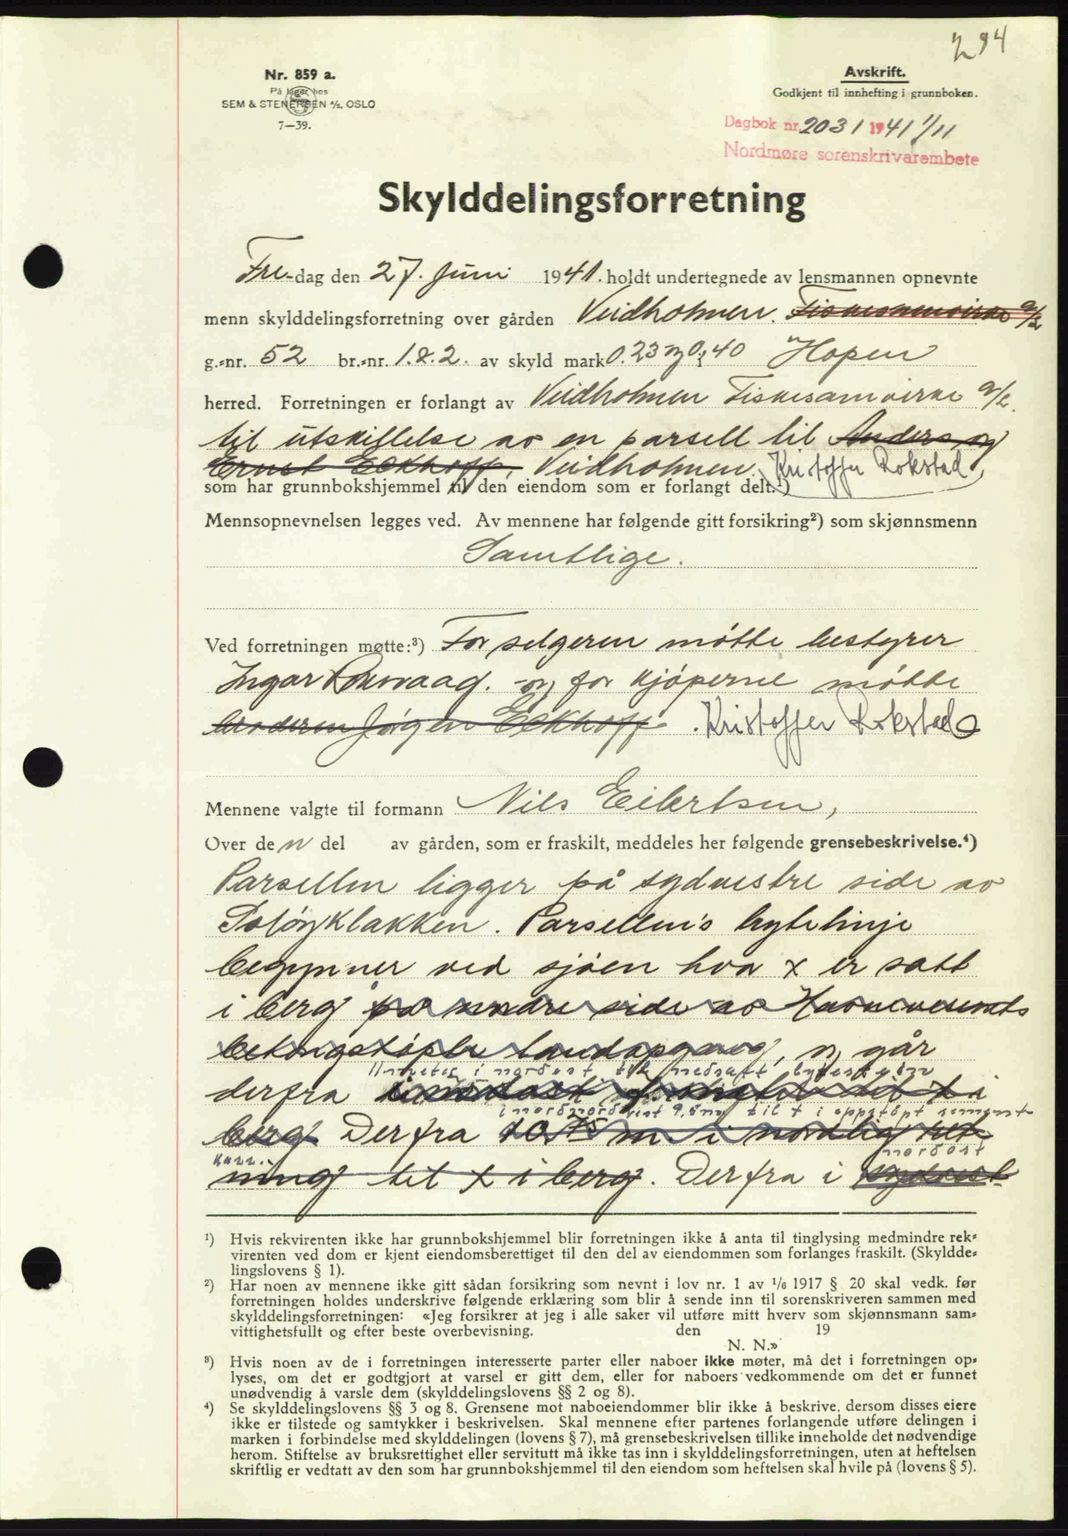 294
Nr. 859 a.
På lager hos
SEM & STENERSEN A/S. OSLO
7—39.
Avskrift.
Godkjent til innhefting i grunnboken.
Dagbok nr. 2031 1941 1/11
Nordmøre sorenskrivarembete
Skylddelingsforretning
Fre-dag den 27. juni 1941. holdt undertegnede av lensmannen opnevnte
menn skylddelingsforretning over gården Veidholmen. Fiskesamvirke A/L
g.-nr. 52 br.-nr. 1 & 2. av skyld mark 0.23 og 0,40 Hopen
herred. Forretningen er forlangt av Veidholmen Fiskesamvirke A/L.
til utskillelse av en parsell til Anders og
Ernst Eckhoff, Veidholmen. Kristoffer Rokstad,
som har grunnbokshjemmel til den eiendom som er forlangt delt.¹)
Mennsopnevnelsen legges ved. Av mennene har følgende gitt forsikring²) som skjønnsmenn
Samtlige.
Ved forretningen møtte:³) For selgeren møtte bestyrer
Ingar og for kjøperne møtte
Jørgen Eckhoff. Kristoffer Rokstad
Mennene valgte til formann Nils Eilertsen,
Over den del av gården, som er fraskilt, meddeles her følgende grensebeskrivelse.⁴)
Parsellen ligger på sydvestre side av
Soløyklakken. Parsellens bytelinje
begynner ved sjøen hvor x er satt
i berg på nordre side av
landgang, og går
derfra i
i nordnordvest 9,5 m til + i oppstøpt sement
berg Derfra 10,75 m i nordlig ret
nordost
ning til x i berg. Derfra i sydvest
¹) Hvis rekvirenten ikke har grunnbokshjemmel blir forretningen ikke å anta til tinglysing medmindre rek-
virenten ved dom er kjent eiendomsberettiget til den del av eiendommen som forlanges fraskilt. (Skyldde-
lingslovens § 1).
²) Har noen av mennene ikke gitt sådan forsikring som nevnt i lov nr. 1 av 1/6 1917 § 20 skal vedk. før
forretningen holdes underskrive følgende erklæring som blir å sende inn til sorenskriveren sammen med
skylddelingsforretningen: «Jeg forsikrer at jeg i alle saker vil utføre mitt hverv som skjønnsmann sam-
vittighetsfullt og efter beste overbevisning. den 19
N. N.»
³) Hvis noen av de i forretningen interesserte parter eller naboer ikke møter, må det i forretningen op-
lyses, om det er godtgjort at varsel er gitt dem, eller for naboers vedkommende om det er funnet
unødvendig å varsle dem (skylddelingslovens §§ 2 og 8).
⁴) Se skylddelingslovens §§ 3 og 8. Grensene mot naboeiendommer blir ikke å beskrive, dersom disses eiere
ikke er tilstede og samtykker i beskrivelsen. Skal mennene efter partenes forlangende utføre delingen i
marken i forbindelse med skylddelingen (lovens § 7), må grensebeskrivelsen tillike inneholde det nødvendige
herom. Stiftelse av bruksrettighet eller servitutt må ikke tas inn i skylddelingsforretningen, uten at heftelsen
skriftlig er vedtatt av den som har grunnbokshjemmel til den eiendom som heftelsen skal hvile på (lovens § 5).